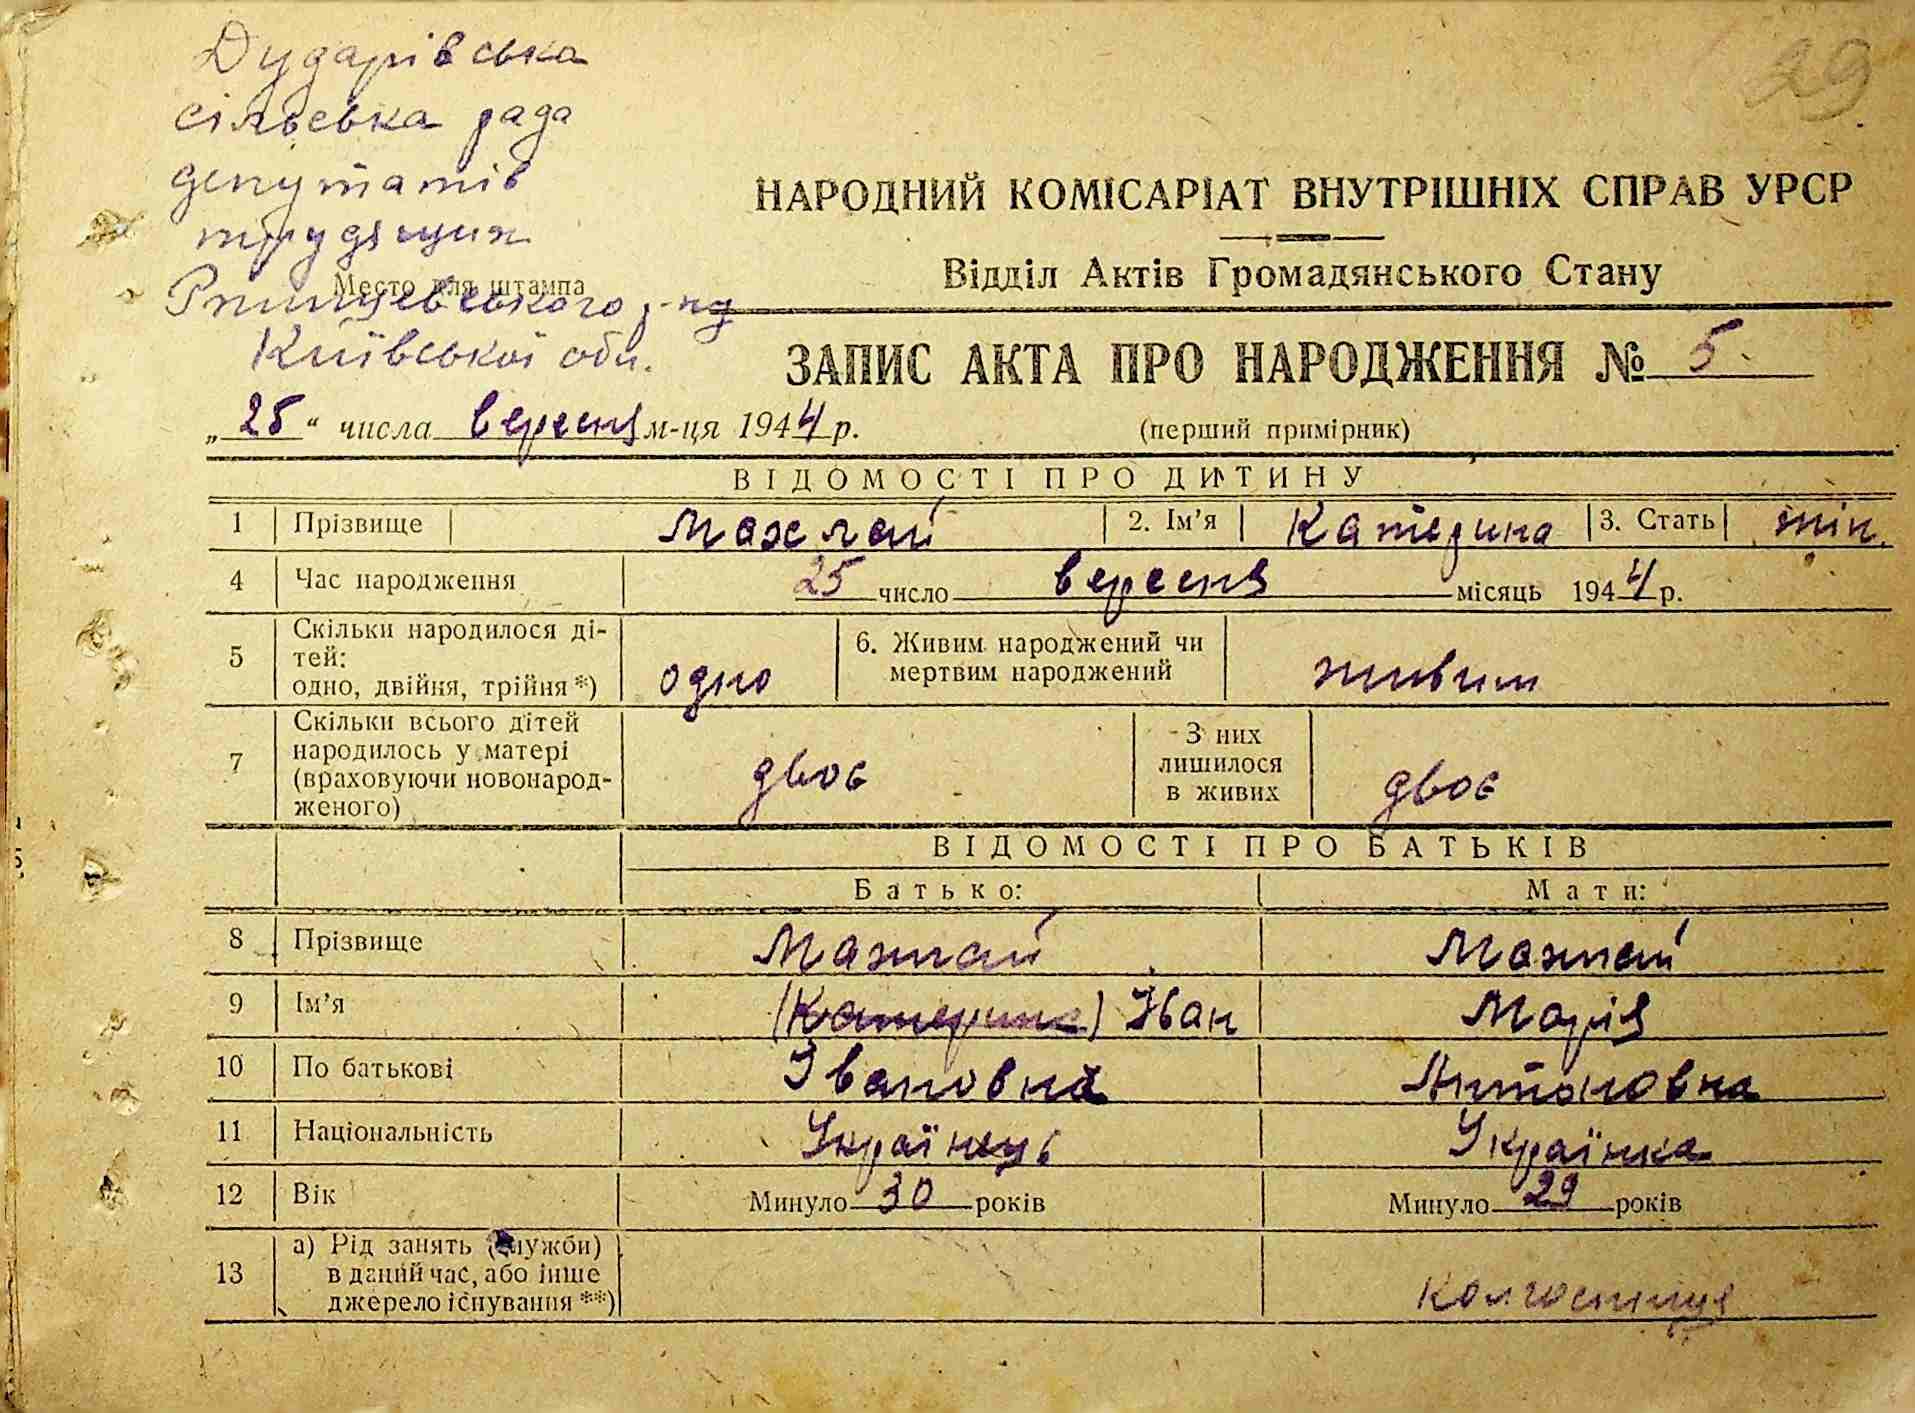 Дударівська
сільська рада
депутатів
трудящих
Место для штампа
Ржищевського р-ну
Київської обл.
29
НАРОДНИЙ КОМІСАРІАТ ВНУТРІШНІХ СПРАВ УРСР
Відділ Актів Громадянського Стану
ЗАПИС АКТА ПРО НАРОДЖЕННЯ № 5.
„25“ числа вересня м-ця 1944 р. (перший примірник)
ВІДОМОСТІ ПРО ДИТИНУ
1 Прізвище Махлай 2. Ім'я Катерина 3. Стать жін.
4 Час народження 25 число вересня місяць 1944 р.
5 Скільки народилося ді-
тей:
одно, двійня, трійня*) одно 6. Живим народжений чи
мертвим народжений живим
7 Скільки всього дітей
народилось у матері
(враховуючи новонарод-
женого) двоє З них
лишилося
в живих двоє
ВІДОМОСТІ ПРО БАТЬКІВ
Батько: Мати:
8 Прізвище Махлай Махлай
9 Ім'я (Катерина) Іван Марія
10 По батькові Івановна Антоновна
11 Національність Українець Українка
12 Вік Минуло 30 років Минуло 29 років
13 а) Рід занять (служби)
в даний час, або інше
джерело існування **) колгоспниця